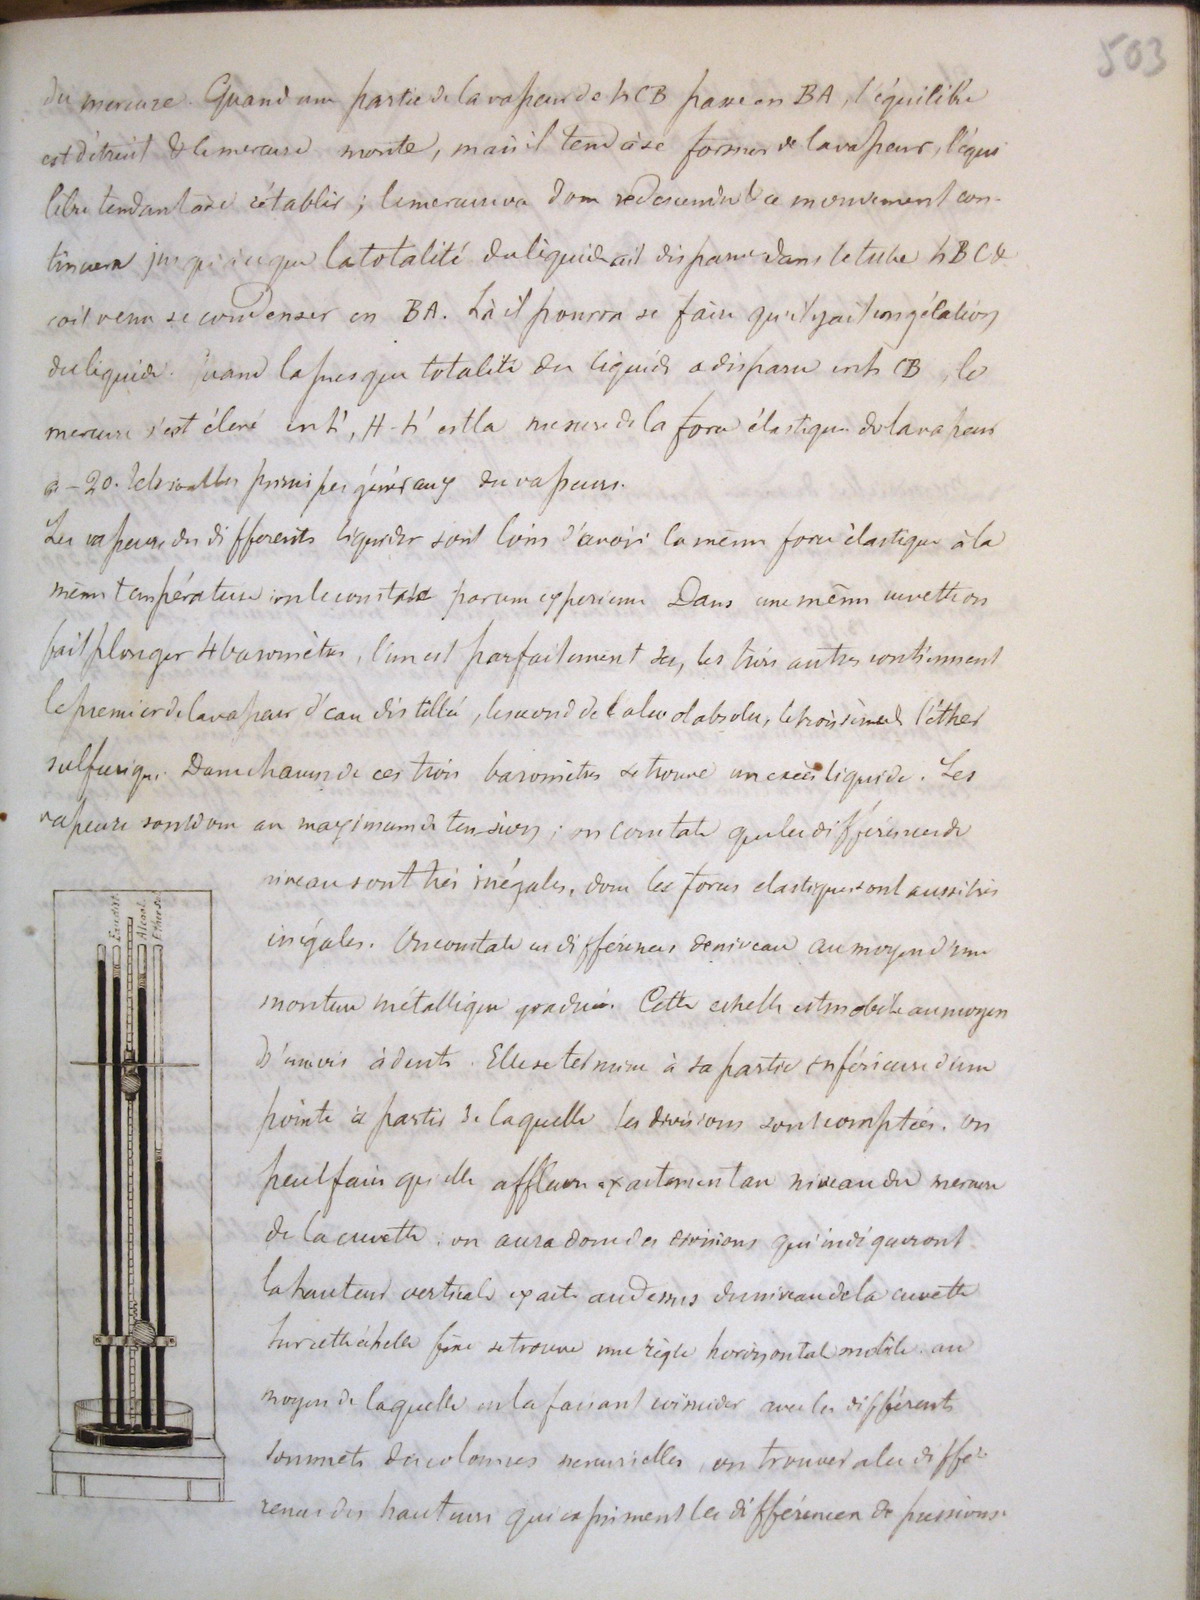 503
du mercure. Quand une partie de la vapeur de hCB passe en BA, l'équilibre
est détruit & le mercure monte, mais il tend à se former de la vapeur, l'équi
libre tendant à se rétablir ; le mercure va donc redescendre & ce mouvement con-
tinuera jusqu'à ce que la totalité du liquide ait disparu dans le tube hBC &
soit venu se condenser en BA. Là il pourra se faire qu'il y ait congélation
du liquide. Quand la presque totalité du liquide a disparu en hCB, le
mercure s'est élevé en h', H-h' est la mesure de la force élastique de la vapeur
à -20. principes généraux des vapeurs.
Les vapeurs des différents liquides sont loin d'avoir la même force élastique à la
même température on le constate par une expérience Dans une même cuvette on
fait plonger 4 baromètres, l'un est parfaitement sec, les trois autres contiennent
le premier de la vapeur d'eau distillée, le second de l'alcool absolu, le troisième de l'éther
sulfurique. Dans chacun de ces trois baromètres se trouve un excès liquide. Les
vapeurs sont donc au maximum de tension ; on constate que les différences de
niveau sont très inégales, donc les forces elastiques sont aussi très
inégales. On constate ces différences de niveau au moyen d'une
monture métallique graduée. Cette echelle est mobile au moyen
d'une vis à dents. Elle se termine à sa partie inférieure d'une
pointe à partir de laquelle les divisions sont comptées. on
peut faire qu'elle affleure exactement au niveau du mercure
de la cuvette. on aura donc des divisions qui indiqueront
la hauteur verticale exacte au dessus du niveau de la cuvette
Sur cette échelle fixe se trouve une règle horizontale mobile au
moyen de laquelle en la faisant coïncider avec les différents
sommets des colonnes mercurielles, on trouvera les diffé-
rences des hauteurs qui expriment les différences de pressions.
Eau dist.
Alcool.
Ether su.